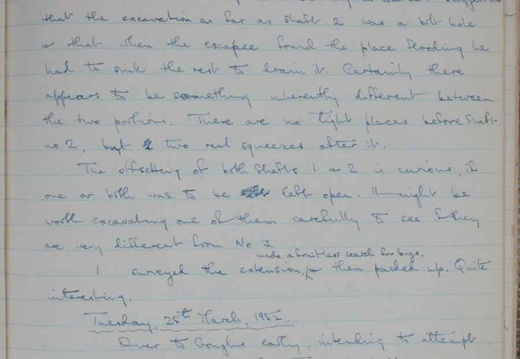 that the excavation as far as shaft 2 was a bolt hole
or that when the escapee found the place flooding he
had to sink the rest to drain it. Certainly there
appears to be something inherently different between
the two portions. There are no tight places before Shaft
no 2, but two real squeezes after it.
The offsetting of both shafts 1 & 2 is curious, if
one or both was to be left open. It might be
worth excavating one of them carefully to see if they
are very different from No 3.
made a fruitless search for bugs,
I surveyed the extension, then packed up. Quite
interesting.
Tuesday, 25th March, 1952.
Over to Douglas early, intending to attempt